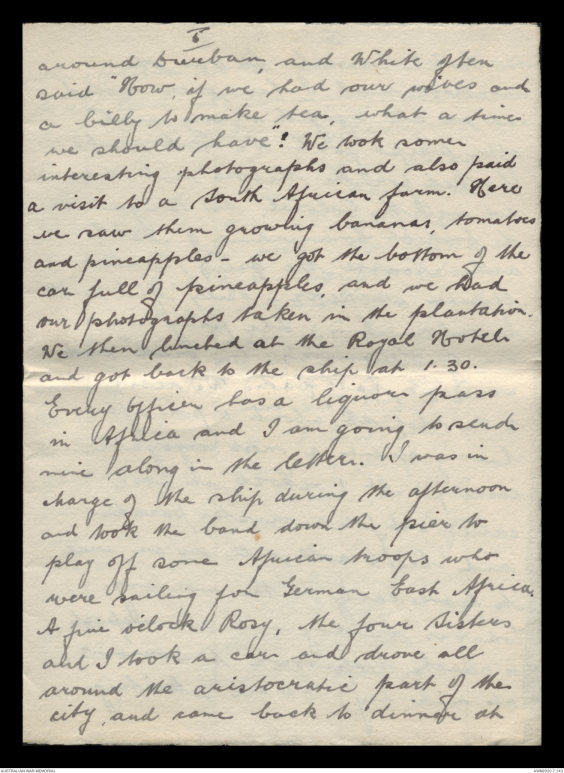 6
around Durban, and White often
said "Now, if we had our wives and
a billy to make tea, what a time
we should have"! We took some
interesting photographs and also paid
a visit to a South African farm. Here
we saw them growing bananas, tomatoes
and pineapples - we got the bottom of the
car full of pineapples, and we had
our photographs taken in the plantation.
We then lunched at the Royal Hotel
and got back to the ship at 1.30.
Every Officer has a liquor pass
in Africa and I am going to send
mine along in the letter. I was in
charge of the ship during the afternoon
and took the band down the pier to
play off some African troops who
were sailing for German East Africa.
A five o'clock Rosy, the four Sisters
and I took a car and drove all
around the aristocratic part of the
city, and came back to dinner at
AUSTRALIAN WAR MEMORIAL